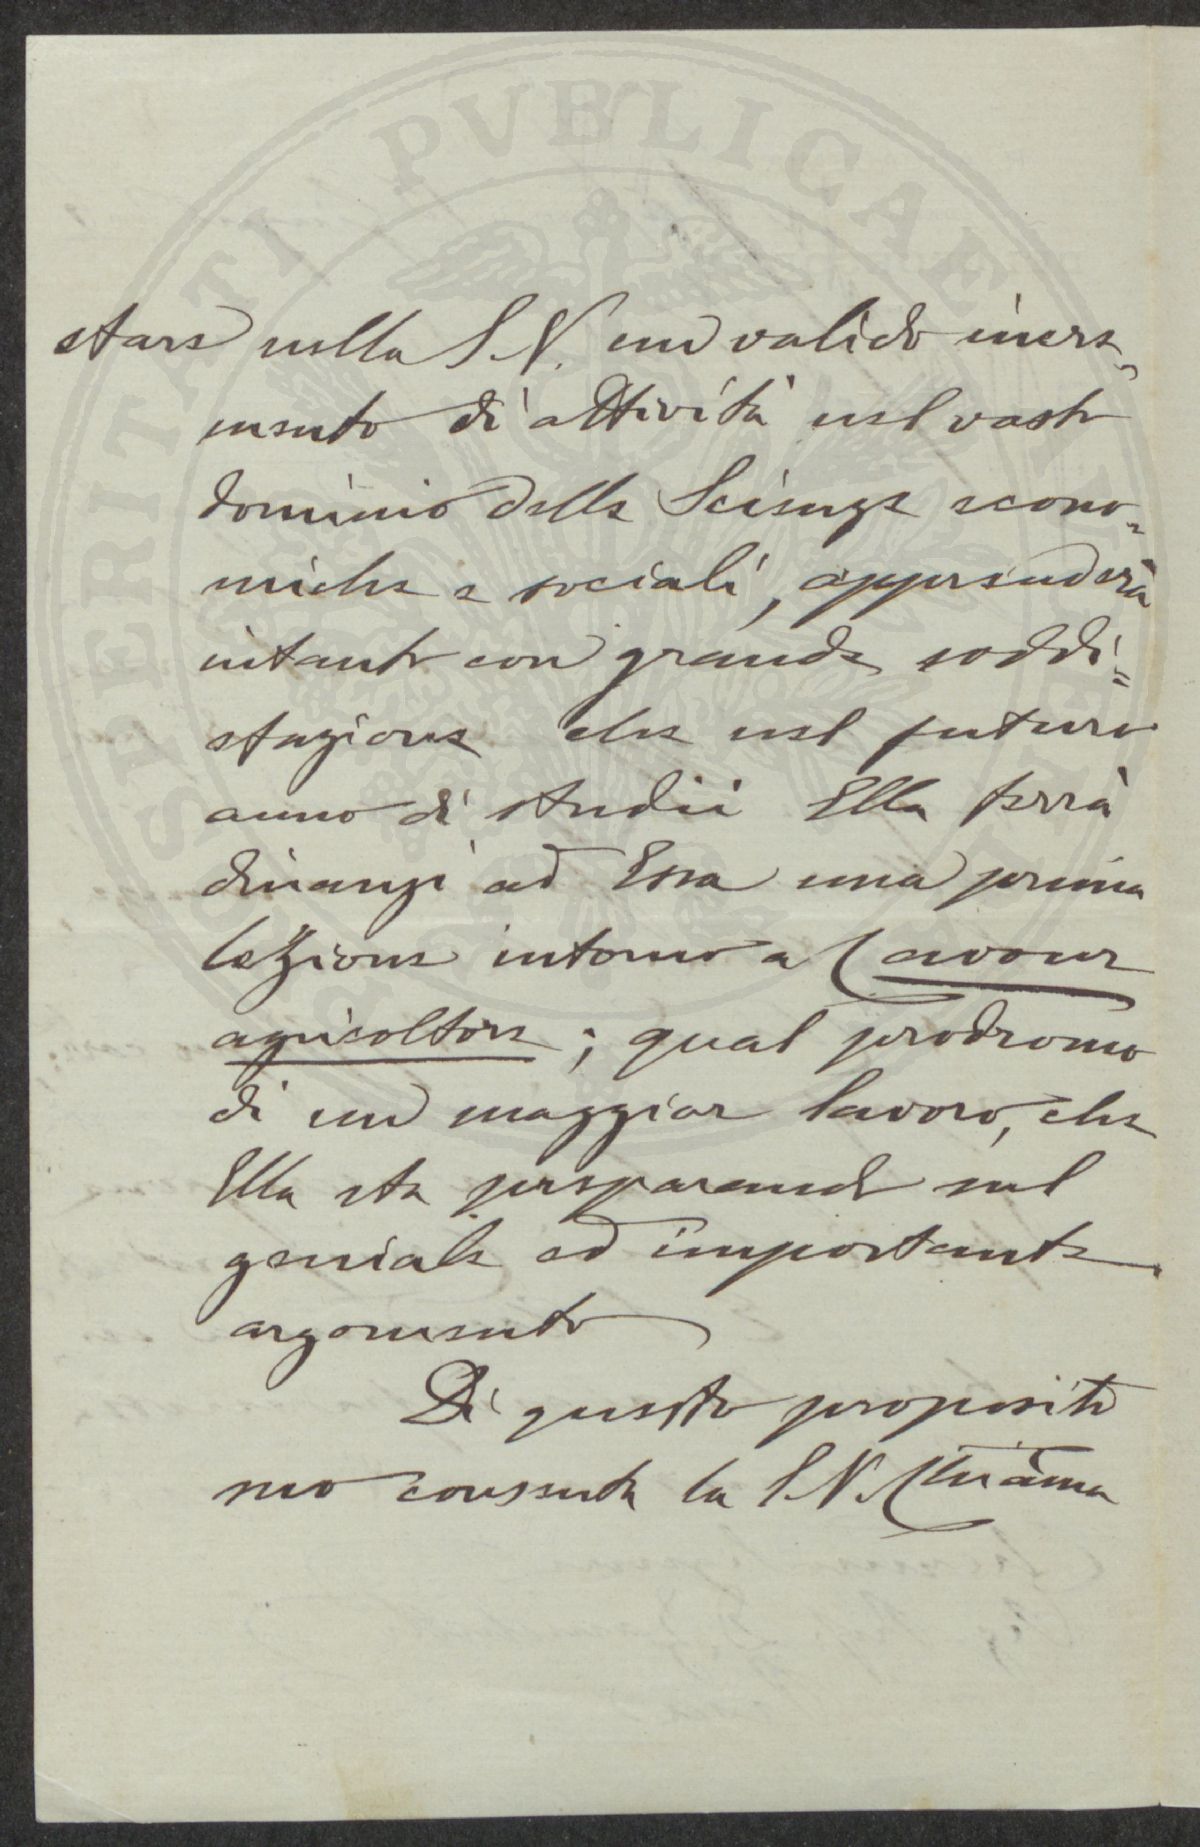 PROSPERITATI PVBLICAE AVGENDAE
stare nella S.V. un valido incre=
mento di attività nel vasto
dominio delle Scienze econo=
miche e sociali, apprenderà
intanto con grande soddi=
sfazione che nel futuro
anno di studii Ella terrà
dinanzi ad Essa una prima
lezione intorno a Cavour
agricoltore; qual prodromo
di un maggior lavoro, che
Ella sta preparando sul
geniale ed importante
argomento
Di questo proposito
suo consenta la S.V. Ill.ma